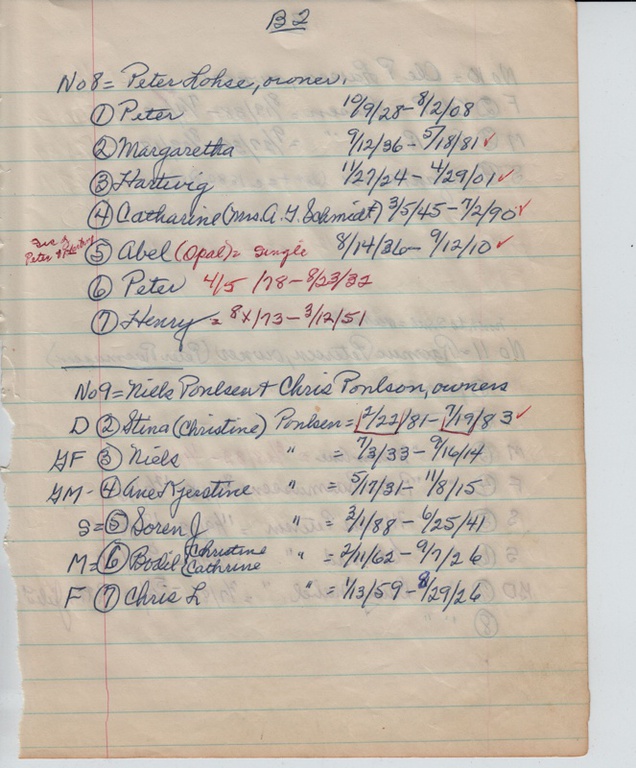 B2
No 8 = Peter Lohse, owner.
① Peter 10/9/28 - 8/2/08
② Margaretha 9/12/36 - 5/18/81 ✓
③ Hartwig 11/27/24 - 4/29/01 ✓
④ Catharine (Mrs. A. J. Schmidt) 3/5/45 - 7/2/90 ✓
⑤ Abel (Opal) = single 8/14/36 - 9/12/10 ✓
⑥ Peter 4/5/78 - 8/23/32
⑦ Henry = 8x/73 - 3/12/51
No 9 = Niels Ponlsen + Chris Ponlson, owners
D ② Stina (Christine) Ponlsen = 2/22/81 - 7/19/83 ✓
GF ③ Niels " = 7/3/33 - 9/16/14
GM - ④ Ane Kjerstine " = 5/17/31 - 11/8/15
S = ⑤ Soren J " = 3/1/88 - 6/25/41
M = ⑥ Bodil { Christine Cathrine " = 2/11/62 - 9/7/26
F ⑦ Chris L " = 1/13/59 - 8/29/26